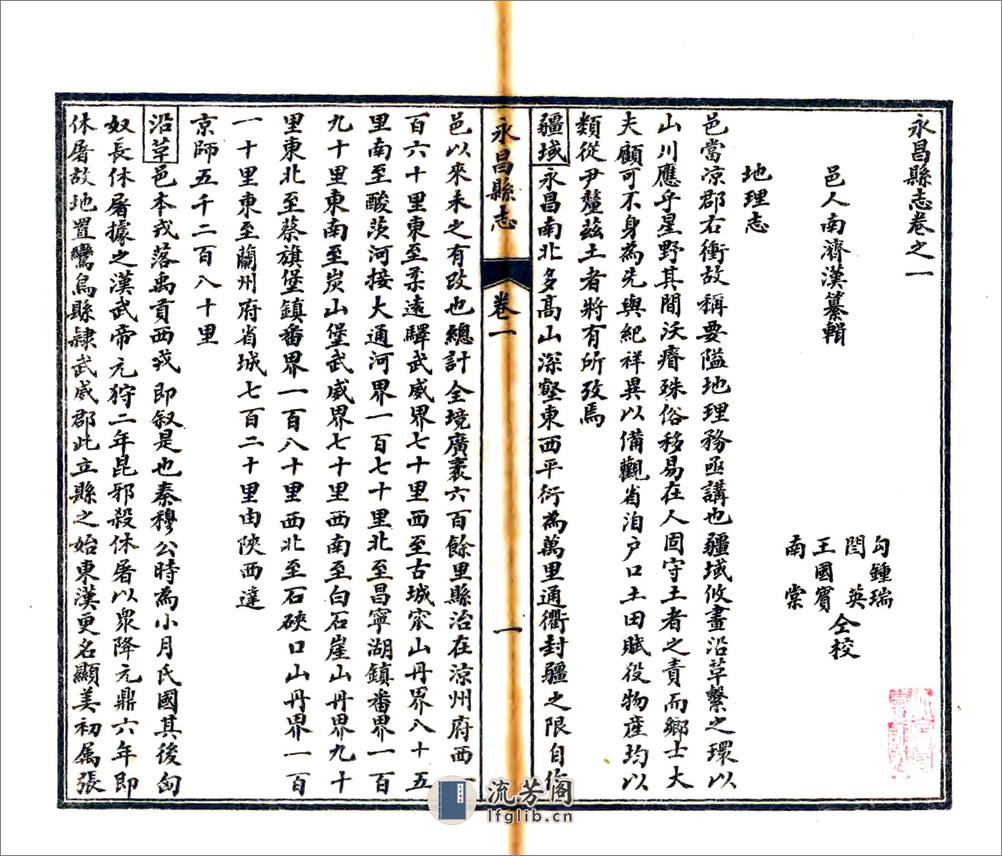 永昌縣志卷之一
邑人南濟漢纂輯
勾鍾瑞
閆英
王國賓
南棠
仝校
地理志
邑當凉郡右衝故稱要隘地理務亟講也疆域攸畫沿革繫之環以
山川應乎星野其間沃瘠殊俗移易在人固守土者之責而鄉士大
夫顧可不身為先與紀祥異以備觀省洎户口土田賦役物産均以
類從尹釐兹土者將有所攷焉
疆域永昌南北多髙山深壑東西平衍為萬里通衢封疆之限自作
永昌縣志 卷一 一
邑以來未之有改也總計全境廣袤六百餘里縣治在涼州府西一
百六十里東至柔遠驛武威界七十里西至古城窊山丹界八十五
里南至酸茨河接大通河界一百七十里北至昌寧湖鎮番界一百
九十里東南至炭山堡武威界七十里西南至白石崖山丹界九十
里東北至蔡旗堡鎮番界一百八十里西北至石硤口山丹界一百
一十里東至蘭州府省城七百二十里由陜西達
京師五千二百八十里
沿革邑本戎落禹貢西戎即叙是也秦穆公時為小月氏國其後匈
奴長休屠據之漢武帝元狩二年昆邪殺休屠以衆降元鼎六年即
休屠故地置鸞鳥縣隸武威郡此立縣之始東漢更名顯美初属張
流芳阁
lfglib.cn